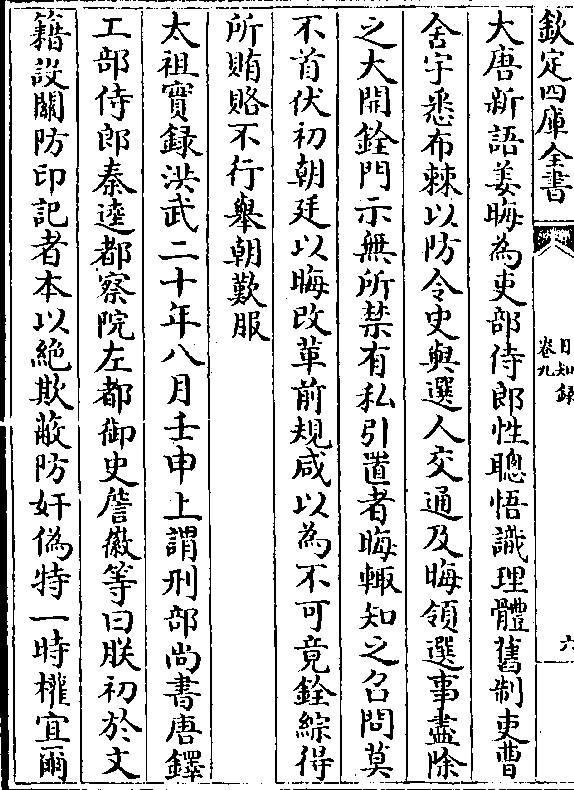 欽定四庫全書
日知録
卷九
六
大唐新語姜晦為吏部侍郎性聰悟識理體舊制吏曹
舍宇悉布棘以防令史與選人交通及晦領選事盡除
之大開銓門示無所禁有私引置者晦輒知之召問莫
不首伏初朝廷以晦改革前規咸以為不可竟銓綜得
所賄賂不行舉朝歎服
太祖實録洪武二十年八月壬申上謂刑部尚書唐鐸
工部侍郎秦逵都察院左都御史詹徽等曰朕初於文
籍設關防印記者本以絶欺蔽防奸偽特一時權宜爾